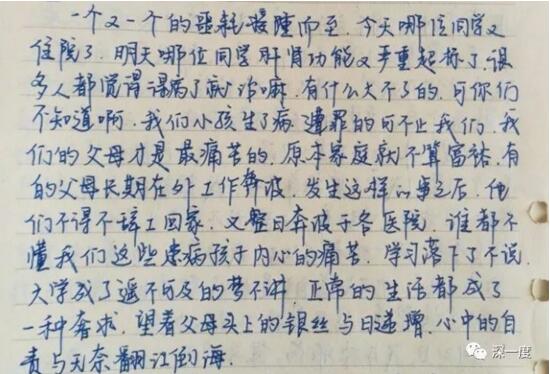 一个又一个的噩耗接踵而至.今天哪位同学又
住院了.明天哪位同学肝肾功能又严重超标了.很
多人都觉得得病了就治嘛.有什么大不了的.可你们
不知道啊.我们小孩生了病遭罪的可不止我们.我
们的父母才是最痛苦的.原本家庭就不算富裕.有
的父母长期在外工作奔波.发生这样的事之后.他
们不得不辞工回家.又整日奔波于各医院.谁都不
懂我们这些患病孩子内心的痛苦.学习落下了不说.
大学成了遥不可及的梦不讲.正常的生活都成了
一种奢求.望着父母头上的银丝与日递增.心中的自
责与无奈翻江倒海.
深一度